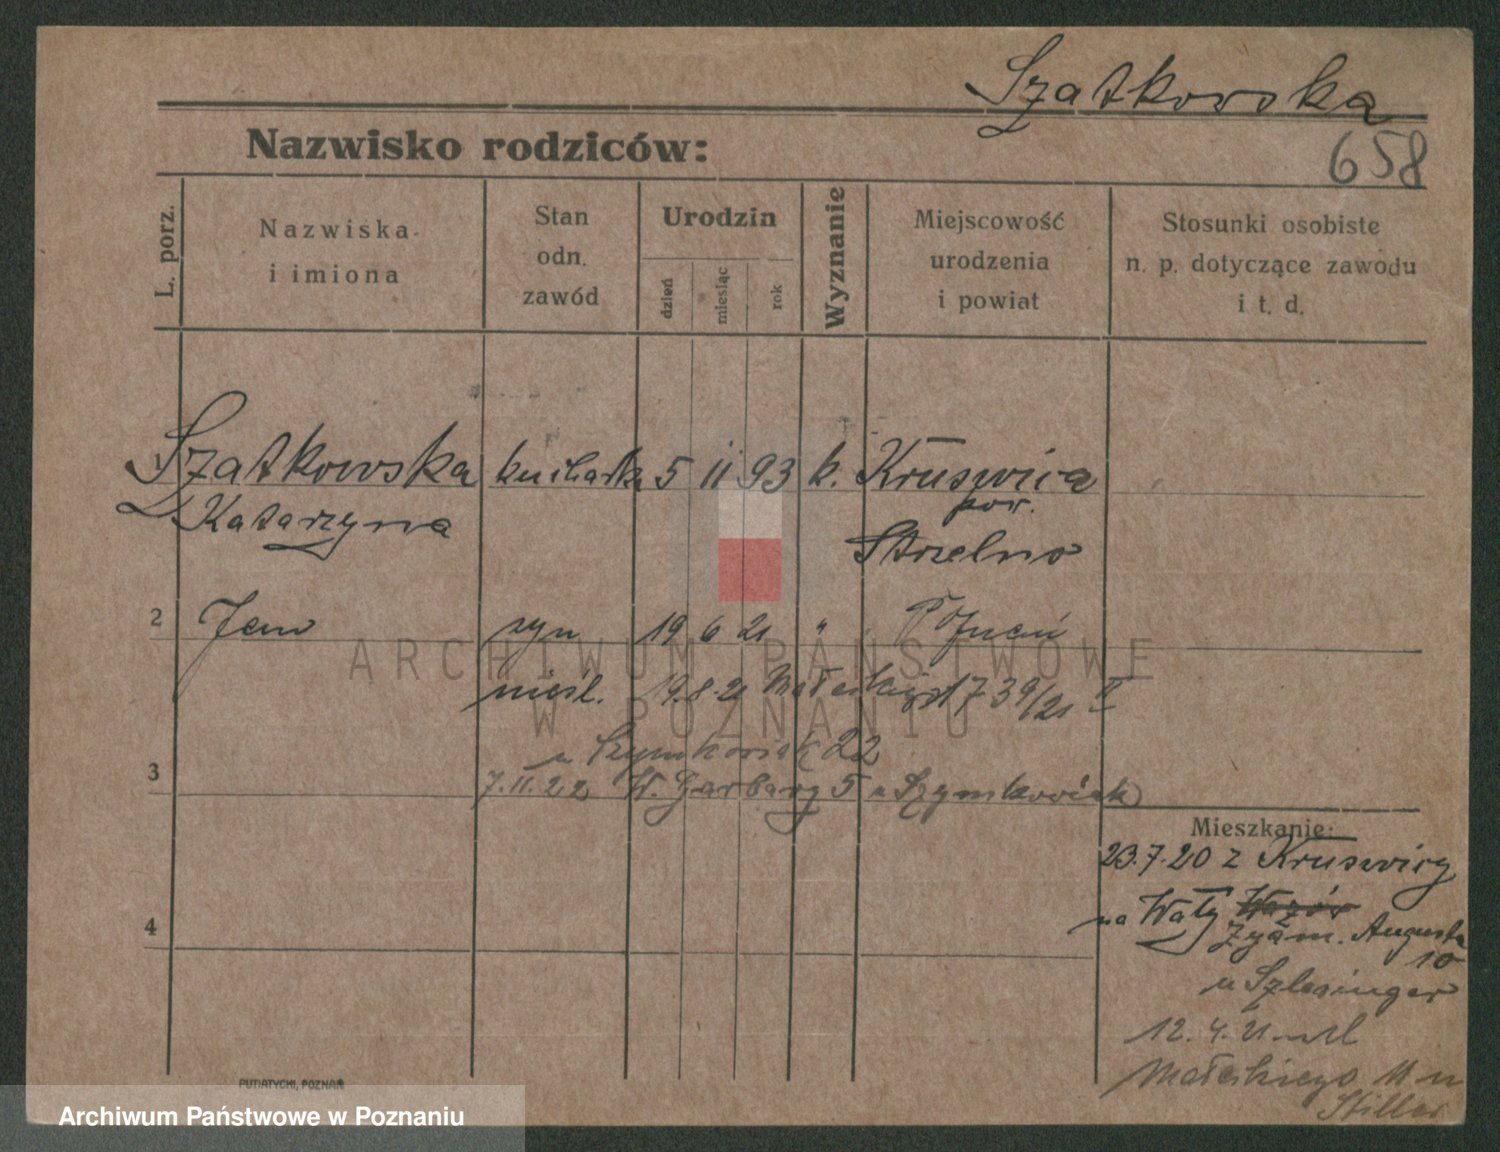 Szatkowska
658
Nazwisko rodziców:
L. porz.
Nazwiska
i imiona
Stan
odn.
zawód
Urodzin
dzień
miesiąc
rok
Wyznanie
Miejscowość
urodzenia
i powiat
Stosunki osobiste
n. p. dotyczące zawodu
i t. d.
1 Szatkowska kucharka 5 11 93 k. Kruszwica
Katarzyna pow.
Strzelno
2 Jan syn 19 6 21 " Poznań
nieśl. 19.8.21 Małeckiego 39/21 II
u Szymkowiak 22
3 7.11.22 W. Garbary 5 u Szymkowiak
Mieszkanie:
23.7.20 z Kruszwicy
na Wały Wazów
Zygm. Augusta
10
u Szlesinger
4
12.4.21 ul
Małeckiego 11 u
Stiller
PUTIATYCKI, POZNAŃ
ARCHIWUM PAŃSTWOWE
W POZNANIU
Archiwum Państwowe w Poznaniu